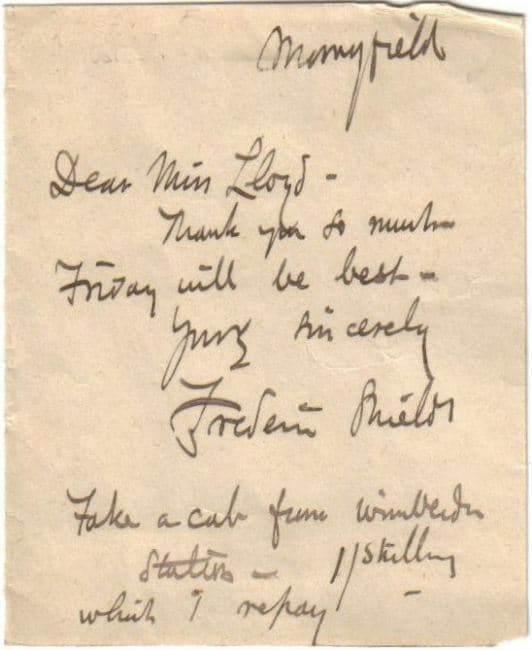 Morayfield
Dear Miss Lloyd -
Thank you so much -
Friday will be best -
Yours sincerely
Frederic Shields
Take a cab from Wimbledon
Station - 1/ Shilling
which I repay -